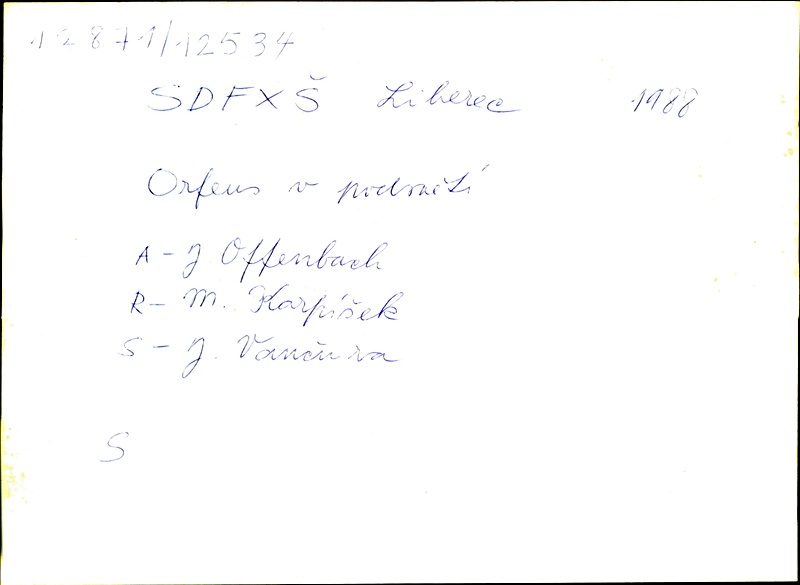 12871/12534
SDFXŠ Liberec 1988
Orfeus v podsvětí
A - J. Offenbach
R - M. Karpíšek
S - J. Vančura
S